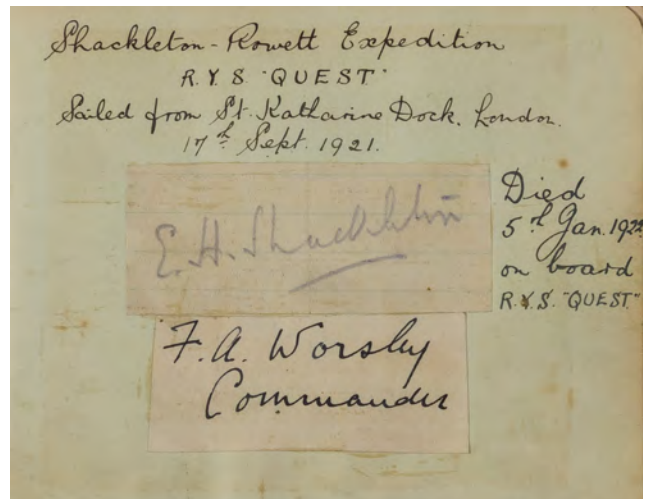 Shackleton-Rowett Expedition
R.Y.S. "QUEST"
Sailed from St. Katharine Dock. London.
17th Sept. 1921.
E.H. Shackleton
Died
5th Jan. 1922
on board
R.Y.S. "QUEST"
F.A. Worsley
Commander